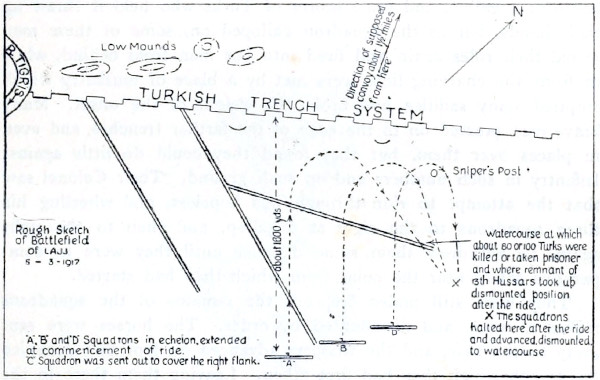 N
R. TIGRIS
LOW MOUNDS
Direction of supposed
convoy, about 1½ miles
from here
TURKISH TRENCH SYSTEM
Sniper's Post
about 1800 yds
Rough Sketch
of Battlefield
of LAJJ
5-3-1917
Watercourse at which
about 80 or 100 Turks were
killed or taken prisoner
and where remnant of
13th Hussars took up
dismounted position
after the ride.
X The squadrons
halted here after the ride
and advanced, dismounted,
to watercourse
X
"A"
"B"
"D"
"A", "B" and "D" Squadrons in echelon, extended
at commencement of ride.
"C" Squadron was sent out to cover the right flank.